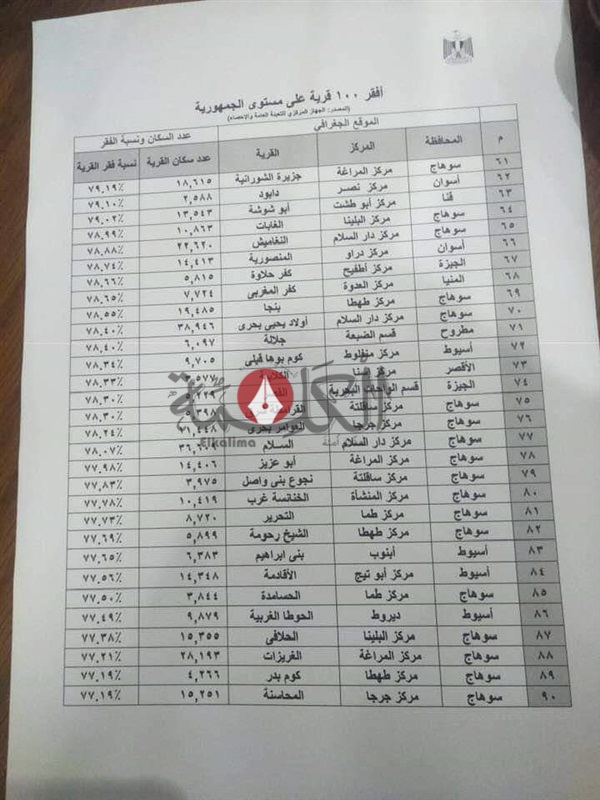 أفقر ١٠٠ قرية على مستوى الجمهورية
(المصدر: الجهاز المركزي للتعبئة العامة والاحصاء)
الموقع الجغرافي عدد السكان ونسبة الفقر
م المحافظة المركز القرية عدد سكان القرية نسبة فقر القرية
٦١ سوهاج مركز المراغة جزيرة الشورانية ١٨,٦١٥ ٧٩.١٩٪
٦٢ أسوان مركز نصر دابود ٢,٥٨٨ ٧٩.١٠٪
٦٣ قنا مركز أبو طشت أبو شوشة ١٣,٥٤٣ ٧٩.٠٢٪
٦٤ سوهاج مركز البلينا الغابات ١٠,٨٦٣ ٧٨.٩٩٪
٦٥ سوهاج مركز دار السلام النغاميش ٢٢,٦٢٠ ٧٨.٨٨٪
٦٦ أسوان مركز دراو المنصورية ١٤,٤١٣ ٧٨.٧٤٪
٦٧ الجيزة مركز أطفيح كفر حلاوة ٥,٨١٥ ٧٨.٦٦٪
٦٨ المنيا مركز العدوة كفر المغربى ٧,٧٢٤ ٧٨.٦٥٪
٦٩ سوهاج مركز طهطا بنجا ١٩,٤٨٥ ٧٨.٥٥٪
٧٠ سوهاج مركز دار السلام أولاد يحيى بحرى ٣٨,٩٤٦ ٧٨.٤٠٪
٧١ مطروح قسم الضبعة جلالة ٦,٠٩٧ ٧٨.٤٠٪
٧٢ أسيوط مركز منفلوط كوم بوها قبلى ٩,٧٠٥ ٧٨.٣٤٪
٧٣ الأقصر مركز ٧٨.٣٣٪
٧٤ الجيزة قسم الواحات البحرية ٧٨.٣٠٪
٧٥ سوهاج مركز ساقلتة ٧٨.٣٠٪
٧٦ سوهاج مركز جرجا العوامر بحرى ٧٨.٢٤٪
٧٧ سوهاج مركز دار السلام السلام ٧٨.٠٧٪
٧٨ سوهاج مركز المراغة أبو عزيز ١٤,٤٠٦ ٧٧.٩٨٪
٧٩ سوهاج مركز ساقلتة نجوع بنى واصل ٣,٩٧٥ ٧٧.٨٣٪
٨٠ سوهاج مركز المنشأة الخنانسة غرب ١٠,٤١٩ ٧٧.٧٨٪
٨١ سوهاج مركز طما التحرير ٨,٧٢٠ ٧٧.٧٣٪
٨٢ سوهاج مركز طهطا الشيخ رحومة ٥,٨٩٩ ٧٧.٦٩٪
٨٣ أسيوط أبنوب بنى ابراهيم ٦,٣٨٣ ٧٧.٦٥٪
٨٤ أسيوط مركز أبو تيج الأقادمة ١٤,٣٤٨ ٧٧.٥٦٪
٨٥ سوهاج مركز طما الحسامدة ٣,٨٤٤ ٧٧.٥٠٪
٨٦ أسيوط ديروط الحوطا الغربية ٩,٨٧٩ ٧٧.٤٩٪
٨٧ سوهاج مركز البلينا الحلافى ١٥,٣٥٥ ٧٧.٣٨٪
٨٨ سوهاج مركز المراغة الغريزات ٢٨,١٩٣ ٧٧.٢١٪
٨٩ سوهاج مركز طهطا كوم بدر ٤,٢٦٦ ٧٧.١٩٪
٩٠ سوهاج مركز جرجا المحاسنة ١٥,٢٥١ ٧٧.١٩٪
Elkalima